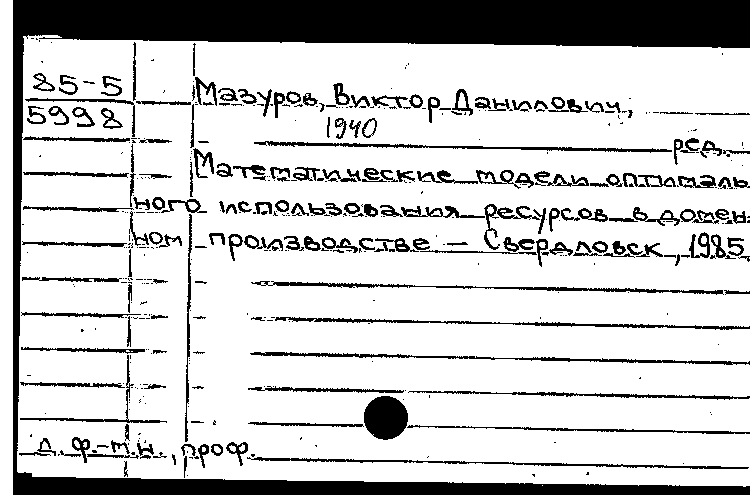 85-5
5998
Мазуров, Виктор Данилович,
1940
ред.
Математические модели оптималь
ного использования ресурсов в домен-
ном производстве — Свердловск, 1985
д. ф.-м.н., проф.